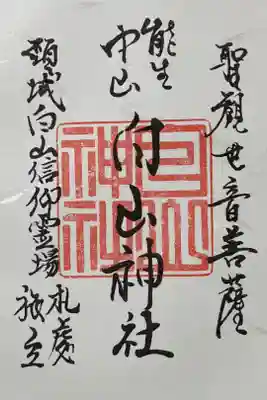 聖観世音菩薩
能生
中山
白山神社
白山
神社
頚城白山信仰霊場
札處